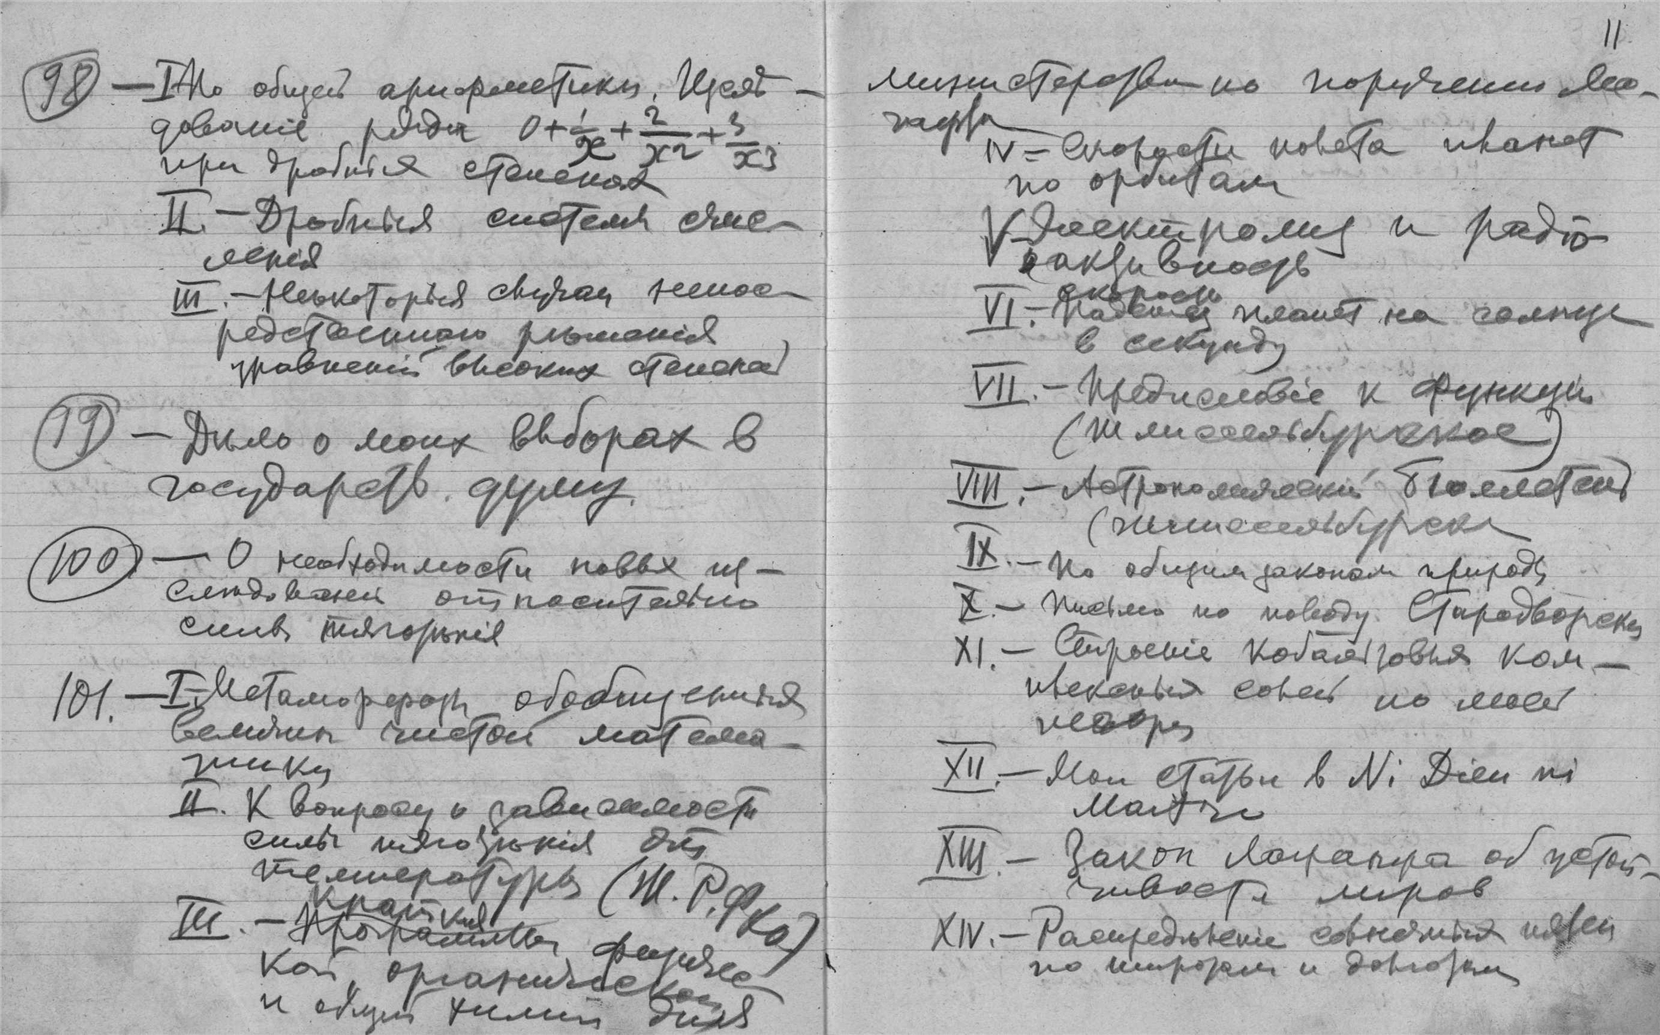 98 — I По общей арифметике. Изслѣ-
дованіе ряда 0 + 1/x + 2/x2 + 3/x3
при дробныя степенях
II. — Дробныя системы счис-
ленія
III. — Нѣкоторыя случаи непос-
редственнаго рѣшенія
уравненій высоких степеней
99 — Дѣло о моих выборах в
государств. думу.
100 — О необходимости новых из-
следованій относительно
силы тяготѣнія
101. — I. Метаморфозы обобщенныя
величин чистой матема-
тики
II. К вопросу о зависимости
силы тяготѣнія от
температуры (Ж. Р. Ф. Хо)
III. — Краткия
Программы физичес
кой, органической
и общей химии для
11
министерства по поручению Лес-
гафта
IV — Скорости полета планет
по орбитам
V Электромиз и радіо-
активность
скорость
VI. — Падения планет на солнце
в секунду
VII. — Предисловіе к Функціи
(Шлиссельбургское)
VIII. — Астрономический бюллетень
(шлиссельбургск
IX. — По общим законам природы
X. — Письмо по поводу Стародворски
XI. — Строеніе кобальтовыя ком-
плексныя солей по моей
теоріи
XII. — Мои статьи в Ni Dieu ni
Maître
XIII. — Закон Лапласа об устой-
чивости миров
XIV. — Распредѣленіе солнечныя пятен
по широтам и долготам